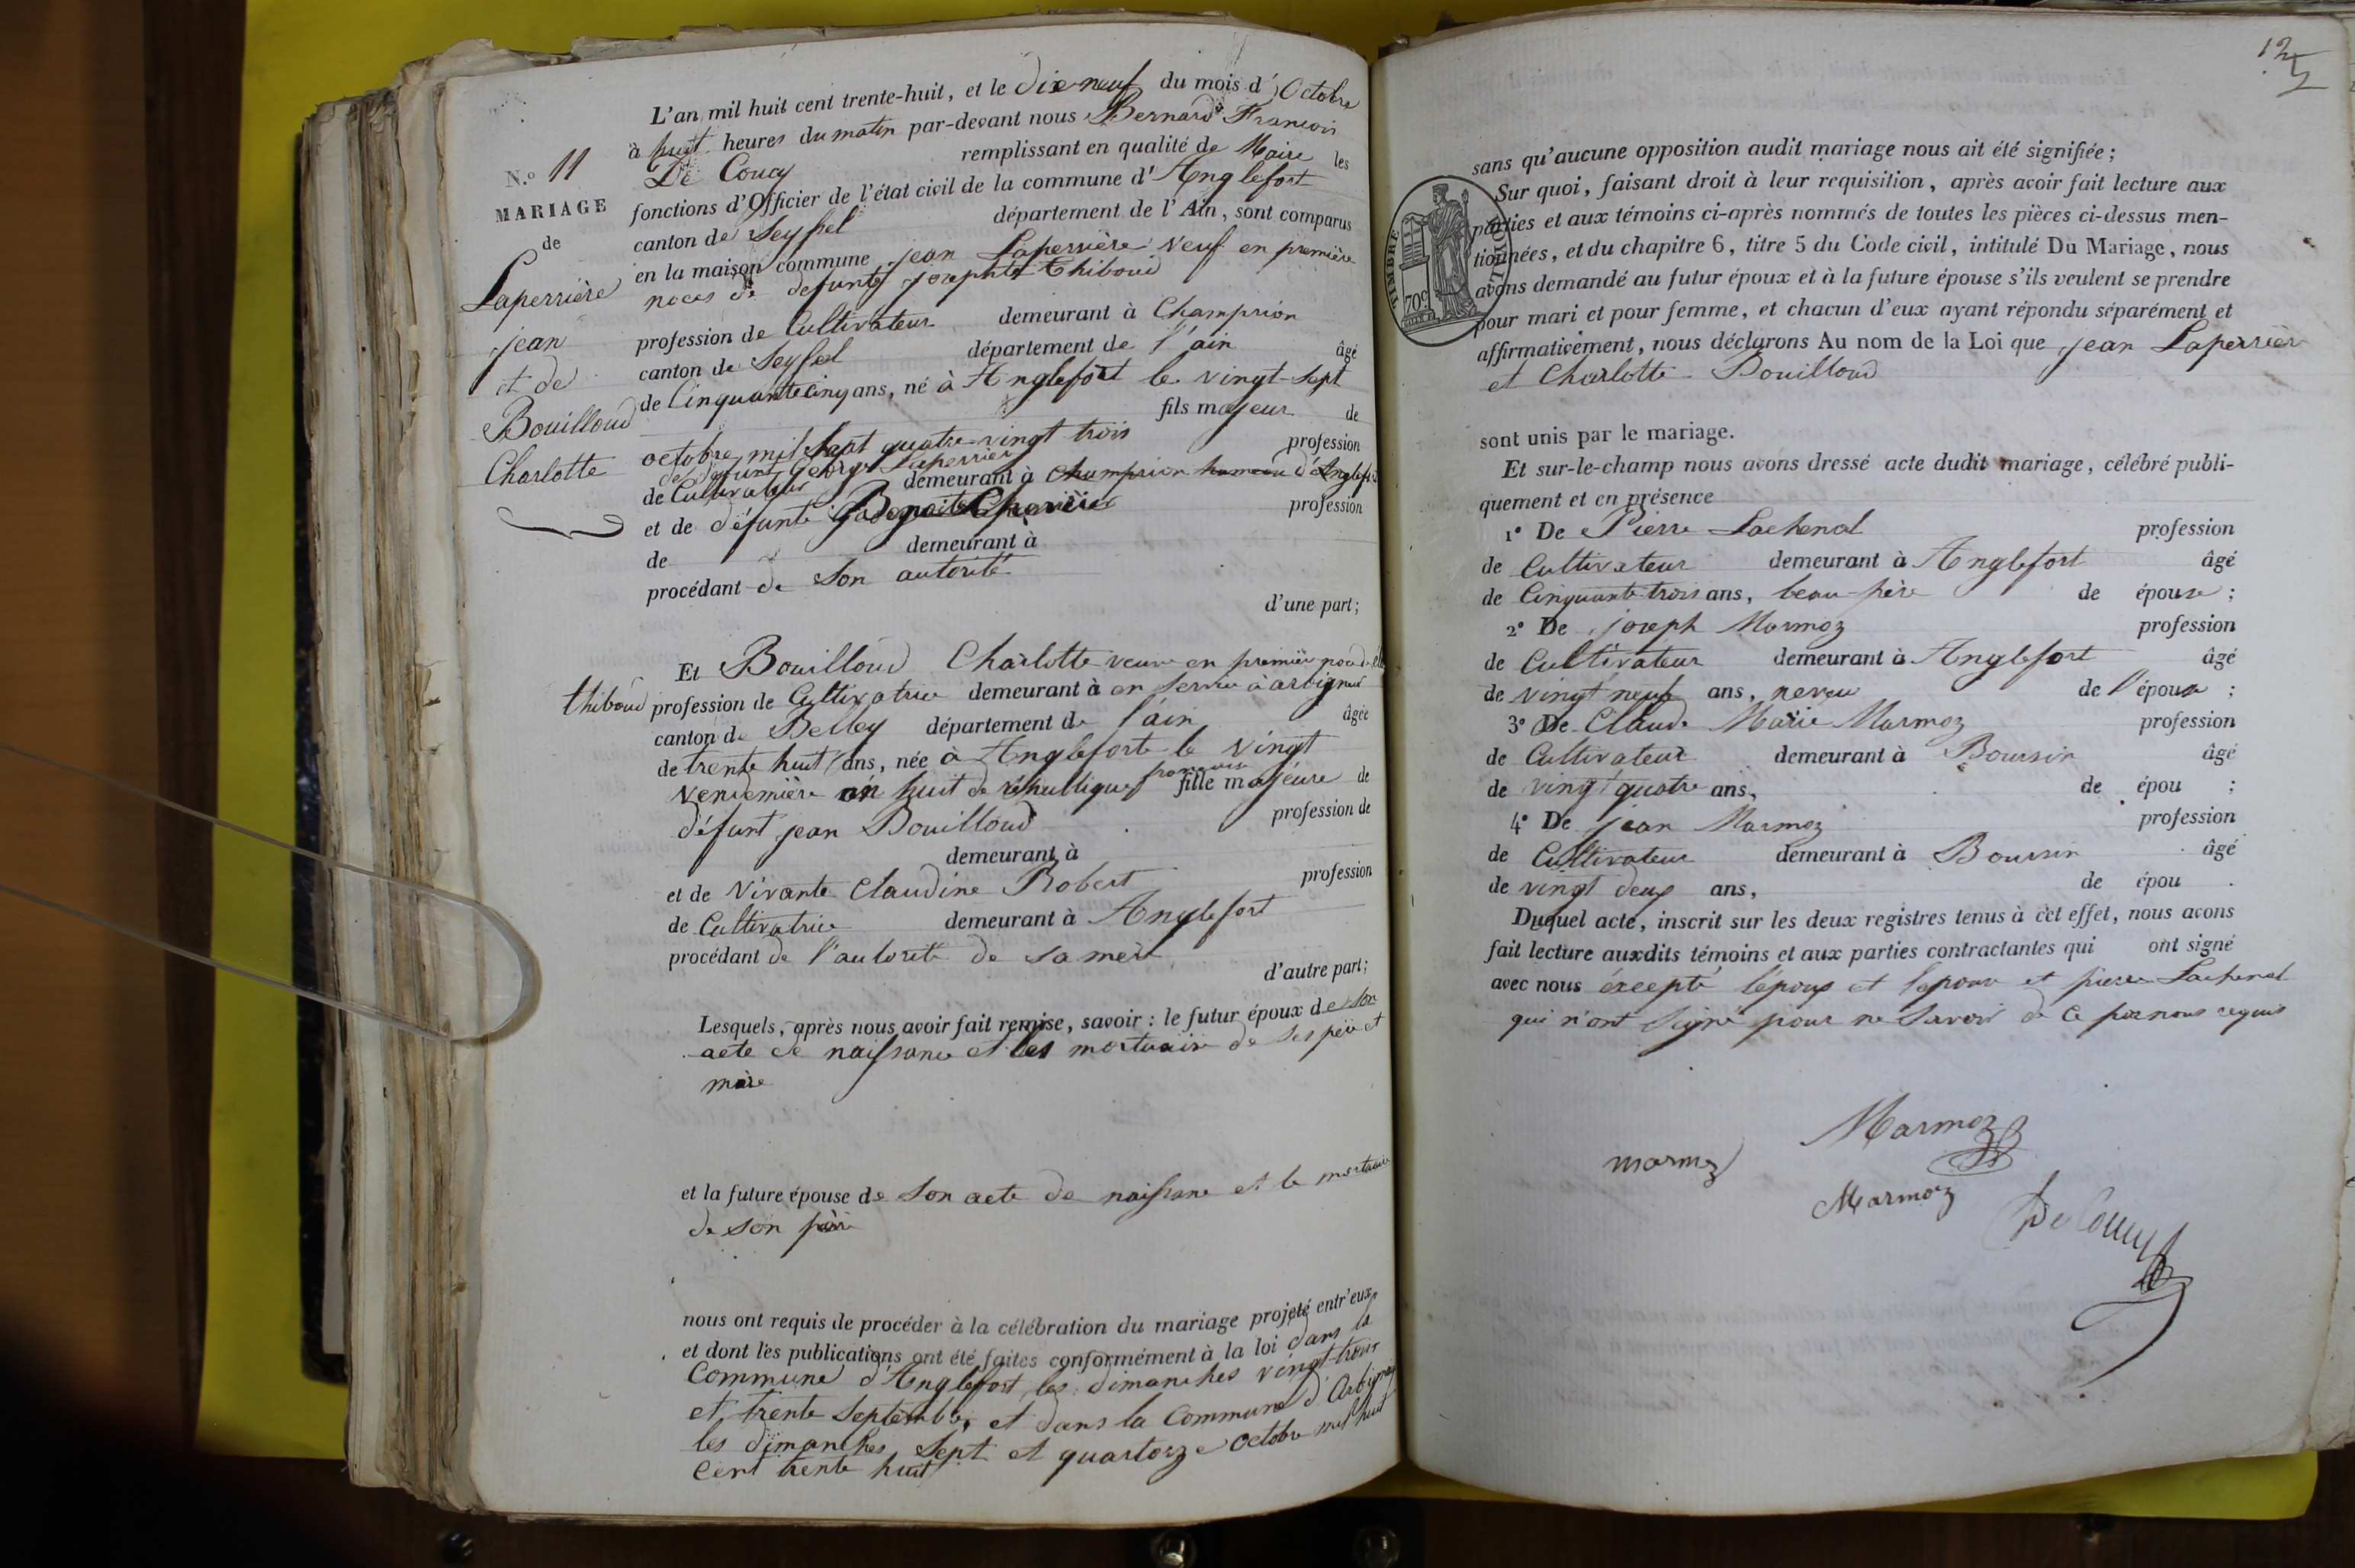 N.º 11
MARIAGE
de
Laperrière
jean
et de
Bouilloud
Charlotte
L'an mil huit cent trente-huit, et le dix-neuf du mois d'Octobre
à huit heures du matin par-devant nous Bernard François
De Coucy remplissant en qualité de Maire les
fonctions d'Officier de l'état civil de la commune d'Anglefort
canton de Seyssel département de l'Ain, sont comparus
en la maison commune jean Laperrière veuf en première
noces de defunte josephte Thiboud
profession de Cultivateur demeurant à Champrion
canton de Seyssel département de l'ain âgé
de Cinquante cinq ans, né à Anglefort le vingt-sept
fils majeur de
octobre mil sept quatre-vingt trois
de defunt George Laperrier profession
de Cultivateur demeurant à Champrion hameau d'Anglefort
et de défunte profession
de demeurant à
procédant de son autorité
d'une part;
Et Bouilloud Charlotte veuve en premier
thiboud profession de Cultivatrice demeurant à en service à arbignieu
canton de Belley département de l'ain âgée
de trente huit ans, née à Angleforte le vingt
vendemière an huit de républiques française fille majeure de
défunt jean Bouilloud profession de
demeurant à
et de vivante Claudine Robert profession
de Cultivatrice demeurant à Anglefort
procédant de l'autorité de sa mère
d'autre part;
Lesquels, après nous avoir fait remise, savoir : le futur époux de son
acte de naissance et les mortuaire de ses père et
mère
et la future épouse de son acte de naissane et le mortuaire
de son père
nous ont requis de procéder à la célébration du mariage projeté entr'eux,
et dont les publications ont été faites conformément à la loi dans la
Commune d'Anglefort les dimanches vingt-trois
et trente Septembre et dans la Commune d'Arbignieu
les dimanches sept et quartorze octobre mil huit
cent trente huit
12
sans qu'aucune opposition audit mariage nous ait été signifiée ;
Sur quoi, faisant droit à leur requisition, après avoir fait lecture aux
parties et aux témoins ci-après nommés de toutes les pièces ci-dessus men-
tionnées, et du chapitre 6, titre 5 du Code civil, intitulé Du Mariage, nous
avons demandé au futur époux et à la future épouse s'ils veulent se prendre
pour mari et pour femme, et chacun d'eux ayant répondu séparément et
affirmativement, nous déclarons Au nom de la Loi que jean Laperrier
et Charlotte Bouilloud
TIMBRE
70c
sont unis par le mariage.
Et sur-le-champ nous avons dressé acte dudit mariage, célébré publi-
quement et en présence
1º De Pierre Lachenal profession
de Cultivateur demeurant à Anglefort âgé
de Cinquante trois ans, beau-père de épouse ;
2º De joseph Marmoz profession
de Cultivateur demeurant à Anglefort âgé
de vingt neuf ans, neveu de l'épouse ;
3º De Claude Marie Marmoz profession
de Cultivateur demeurant à Boursin âgé
de vingt quatre ans, de épou ;
4º De jean Marmoz profession
de Cultivateur demeurant à Boursin âgé
de vingt deux ans, de épou .
Duquel acte, inscrit sur les deux registres tenus à cet effet, nous avons
fait lecture auxdits témoins et aux parties contractantes qui ont signé
avec nous éxcepté l'époux et l'epouse et pierre Lachenal
qui n'ont signé pour ne savoir de ce par nous requis
Marmoz
marmoz
Marmoz
De Coucy